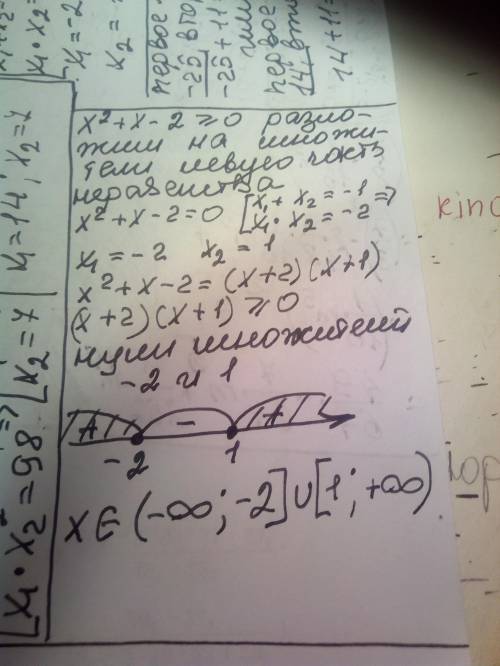 x² + x - 2 ≥ 0 разло-
жим на множи-
тели левую часть
неравенства
x² + x - 2 = 0 [x₁ + x₂ = -1
x₁ · x₂ = -2 ⇒
x₁ = -2 x₂ = 1
x² + x - 2 = (x+2)(x+1)
(x+2)(x+1) ≥ 0
нули множителей
-2 и 1
+ - +
-2 1
x ∈ (-∞; -2] ∪ [1; +∞)
[x₁ · x₂ = 98 ⇒ [x₂ = 7 x₁ = 14; x₂ = 7
x₁ · x₂
x₁ = -2
x₂ =
первое
-25 вто
-25 + 11 =
первое
14, вт
14 + 11 =
кino